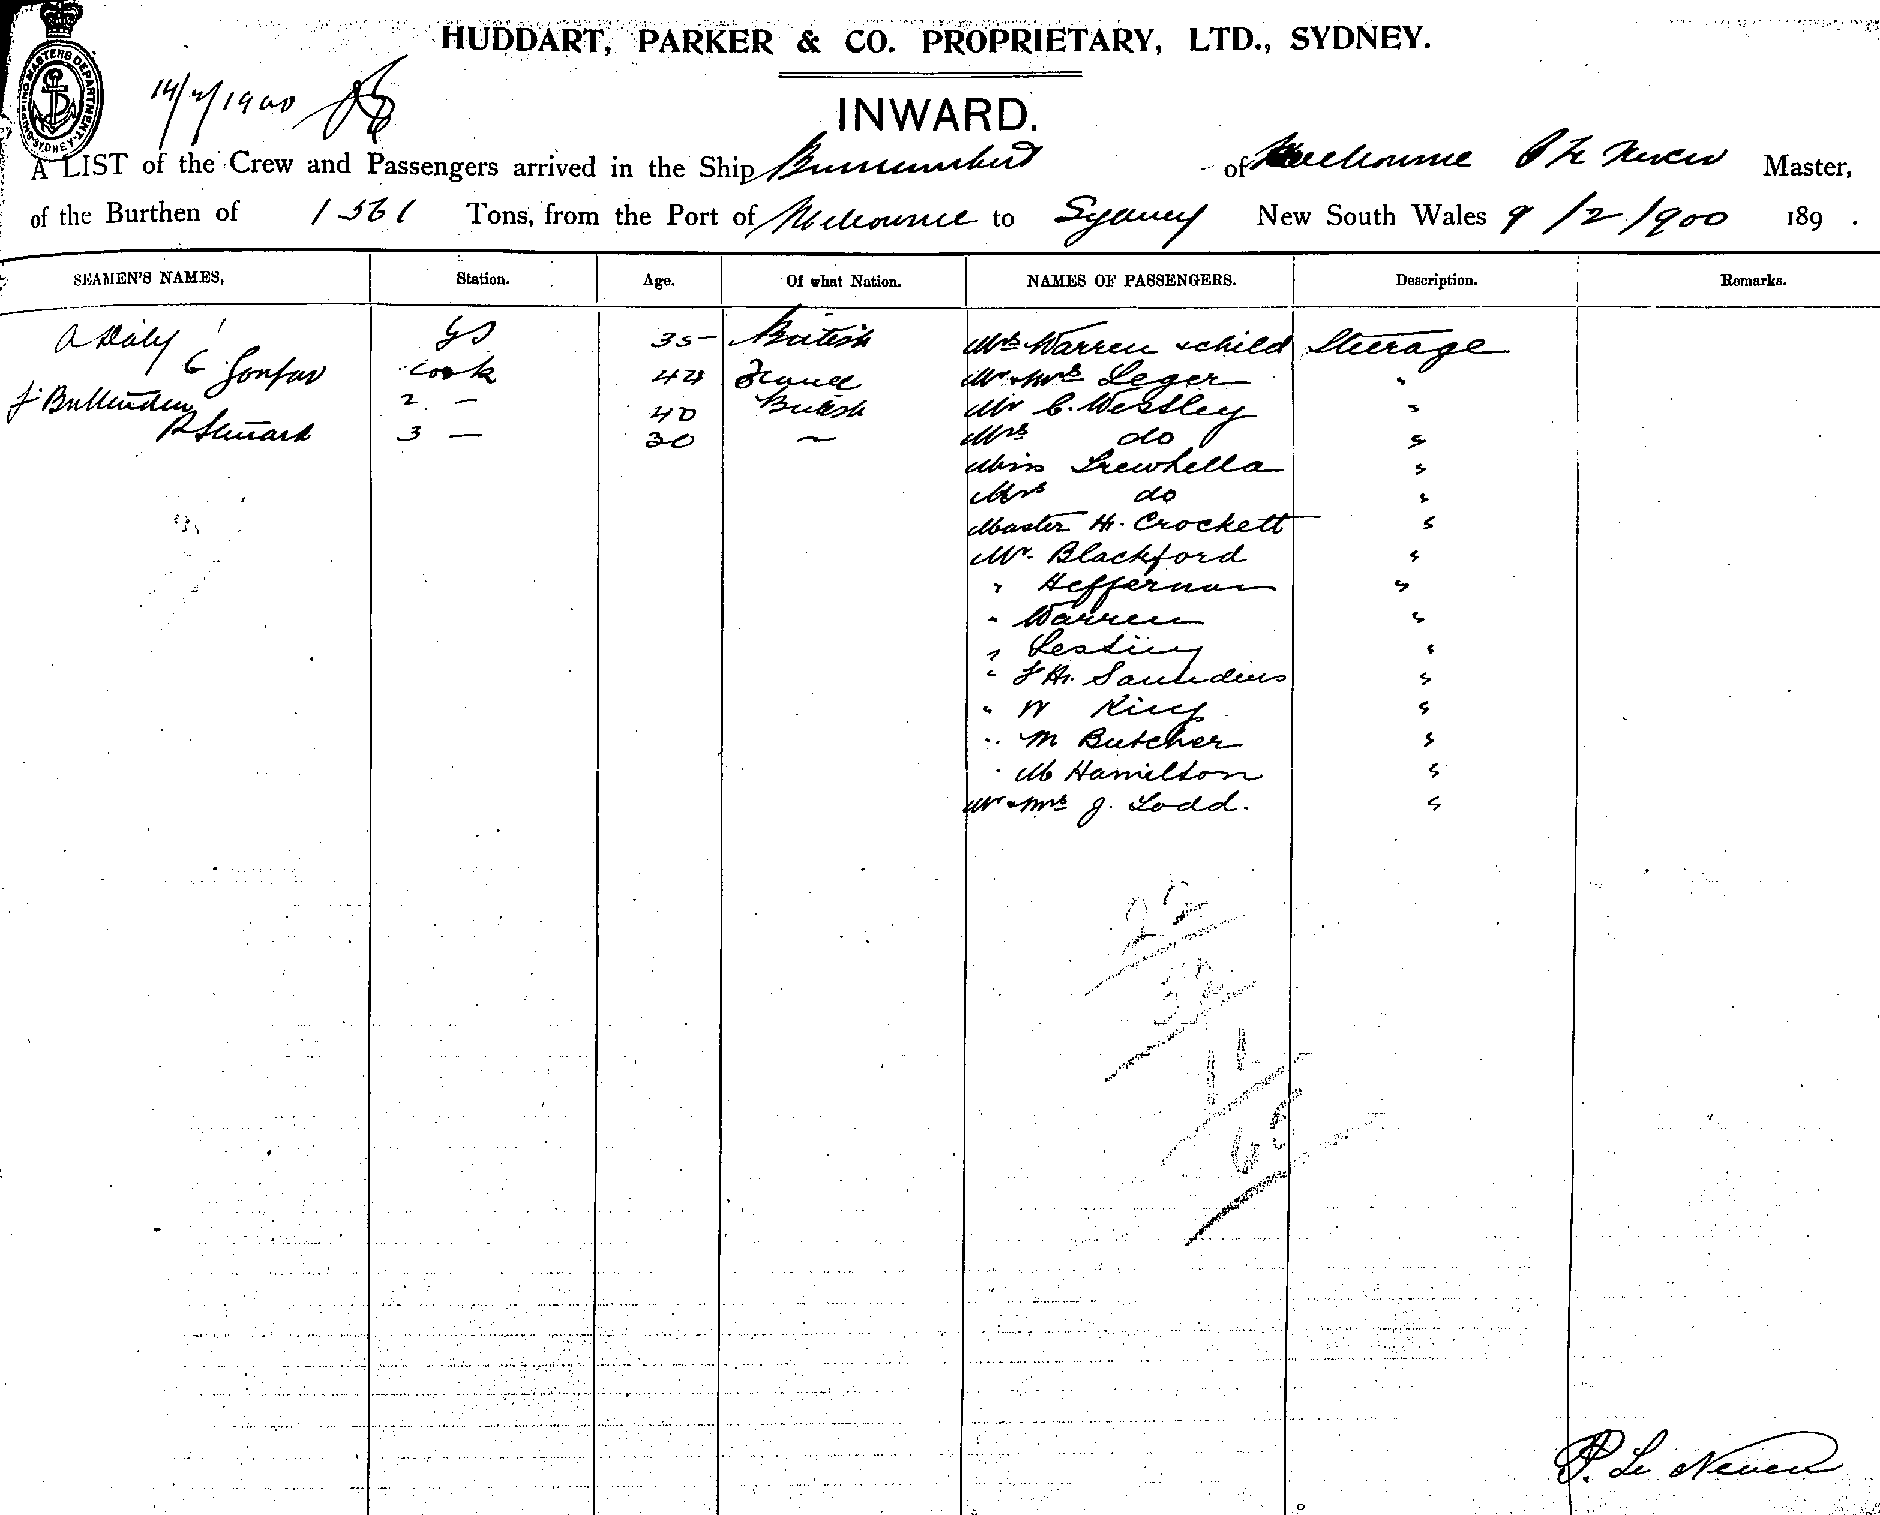 HUDDART, PARKER & CO. PROPRIETARY, LTD., SYDNEY.
SHIPPING MASTERS DEPARTMENT. SYDNEY.
14/2/1900
INWARD.
A LIST of the Crew and Passengers arrived in the Ship Burrumbeet of Melbourne P Le Neveu Master,
of the Burthen of 1561 Tons, from the Port of Melbourne to Sydney New South Wales 9/2/1900 189 .
SEAMEN'S NAMES, Station. Age. Of what Nation. NAMES OF PASSENGERS. Description. Remarks.
A Daly GS 35 British Mrs Warren & child Steerage
C cook 44 France Mr & Mrs Leger "
J 2 - 40 British Mr C. Westley "
R Stewart 3 - 30 ~ Mrs do "
Miss Trewhella "
Mrs do "
Master H. Crockett "
Mr. Blackford "
" Heffernan "
" Warren "
" Lesting "
" F H. Saunders "
" W King "
" M Butcher "
" M Hamilton "
Mr & Mrs J. Todd. "
22
11
P. Le Neveu